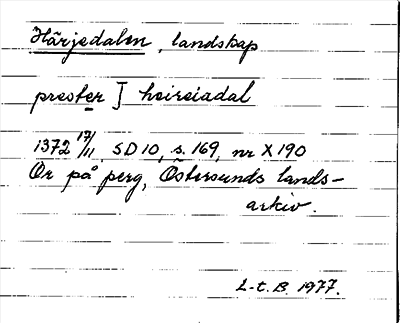 Härjedalen, landskap
prester J heireiadal
1372 17/11 SD 10, s. 169, nr X 190
Or på perg, Östersunds lands-
arkiv.
L-t.B. 1977.